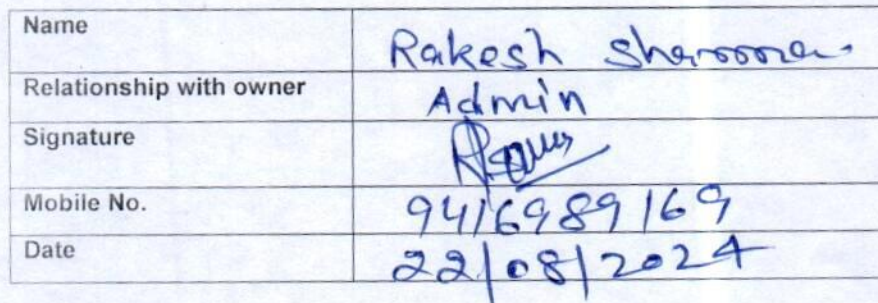 Name Rakesh Sharma
Relationship with owner Admin
Signature
Mobile No. 9416989169
Date 22/08/2024